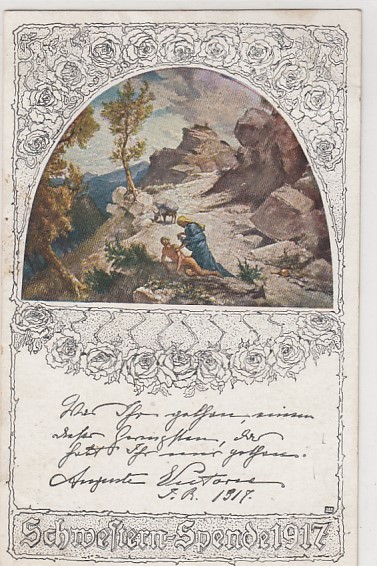 Was Ihr gethan einem
dieser Geringsten, das
habt Ihr mir gethan.
Auguste Victoria
I.R. 1917.
Schwestern-Spende 1917